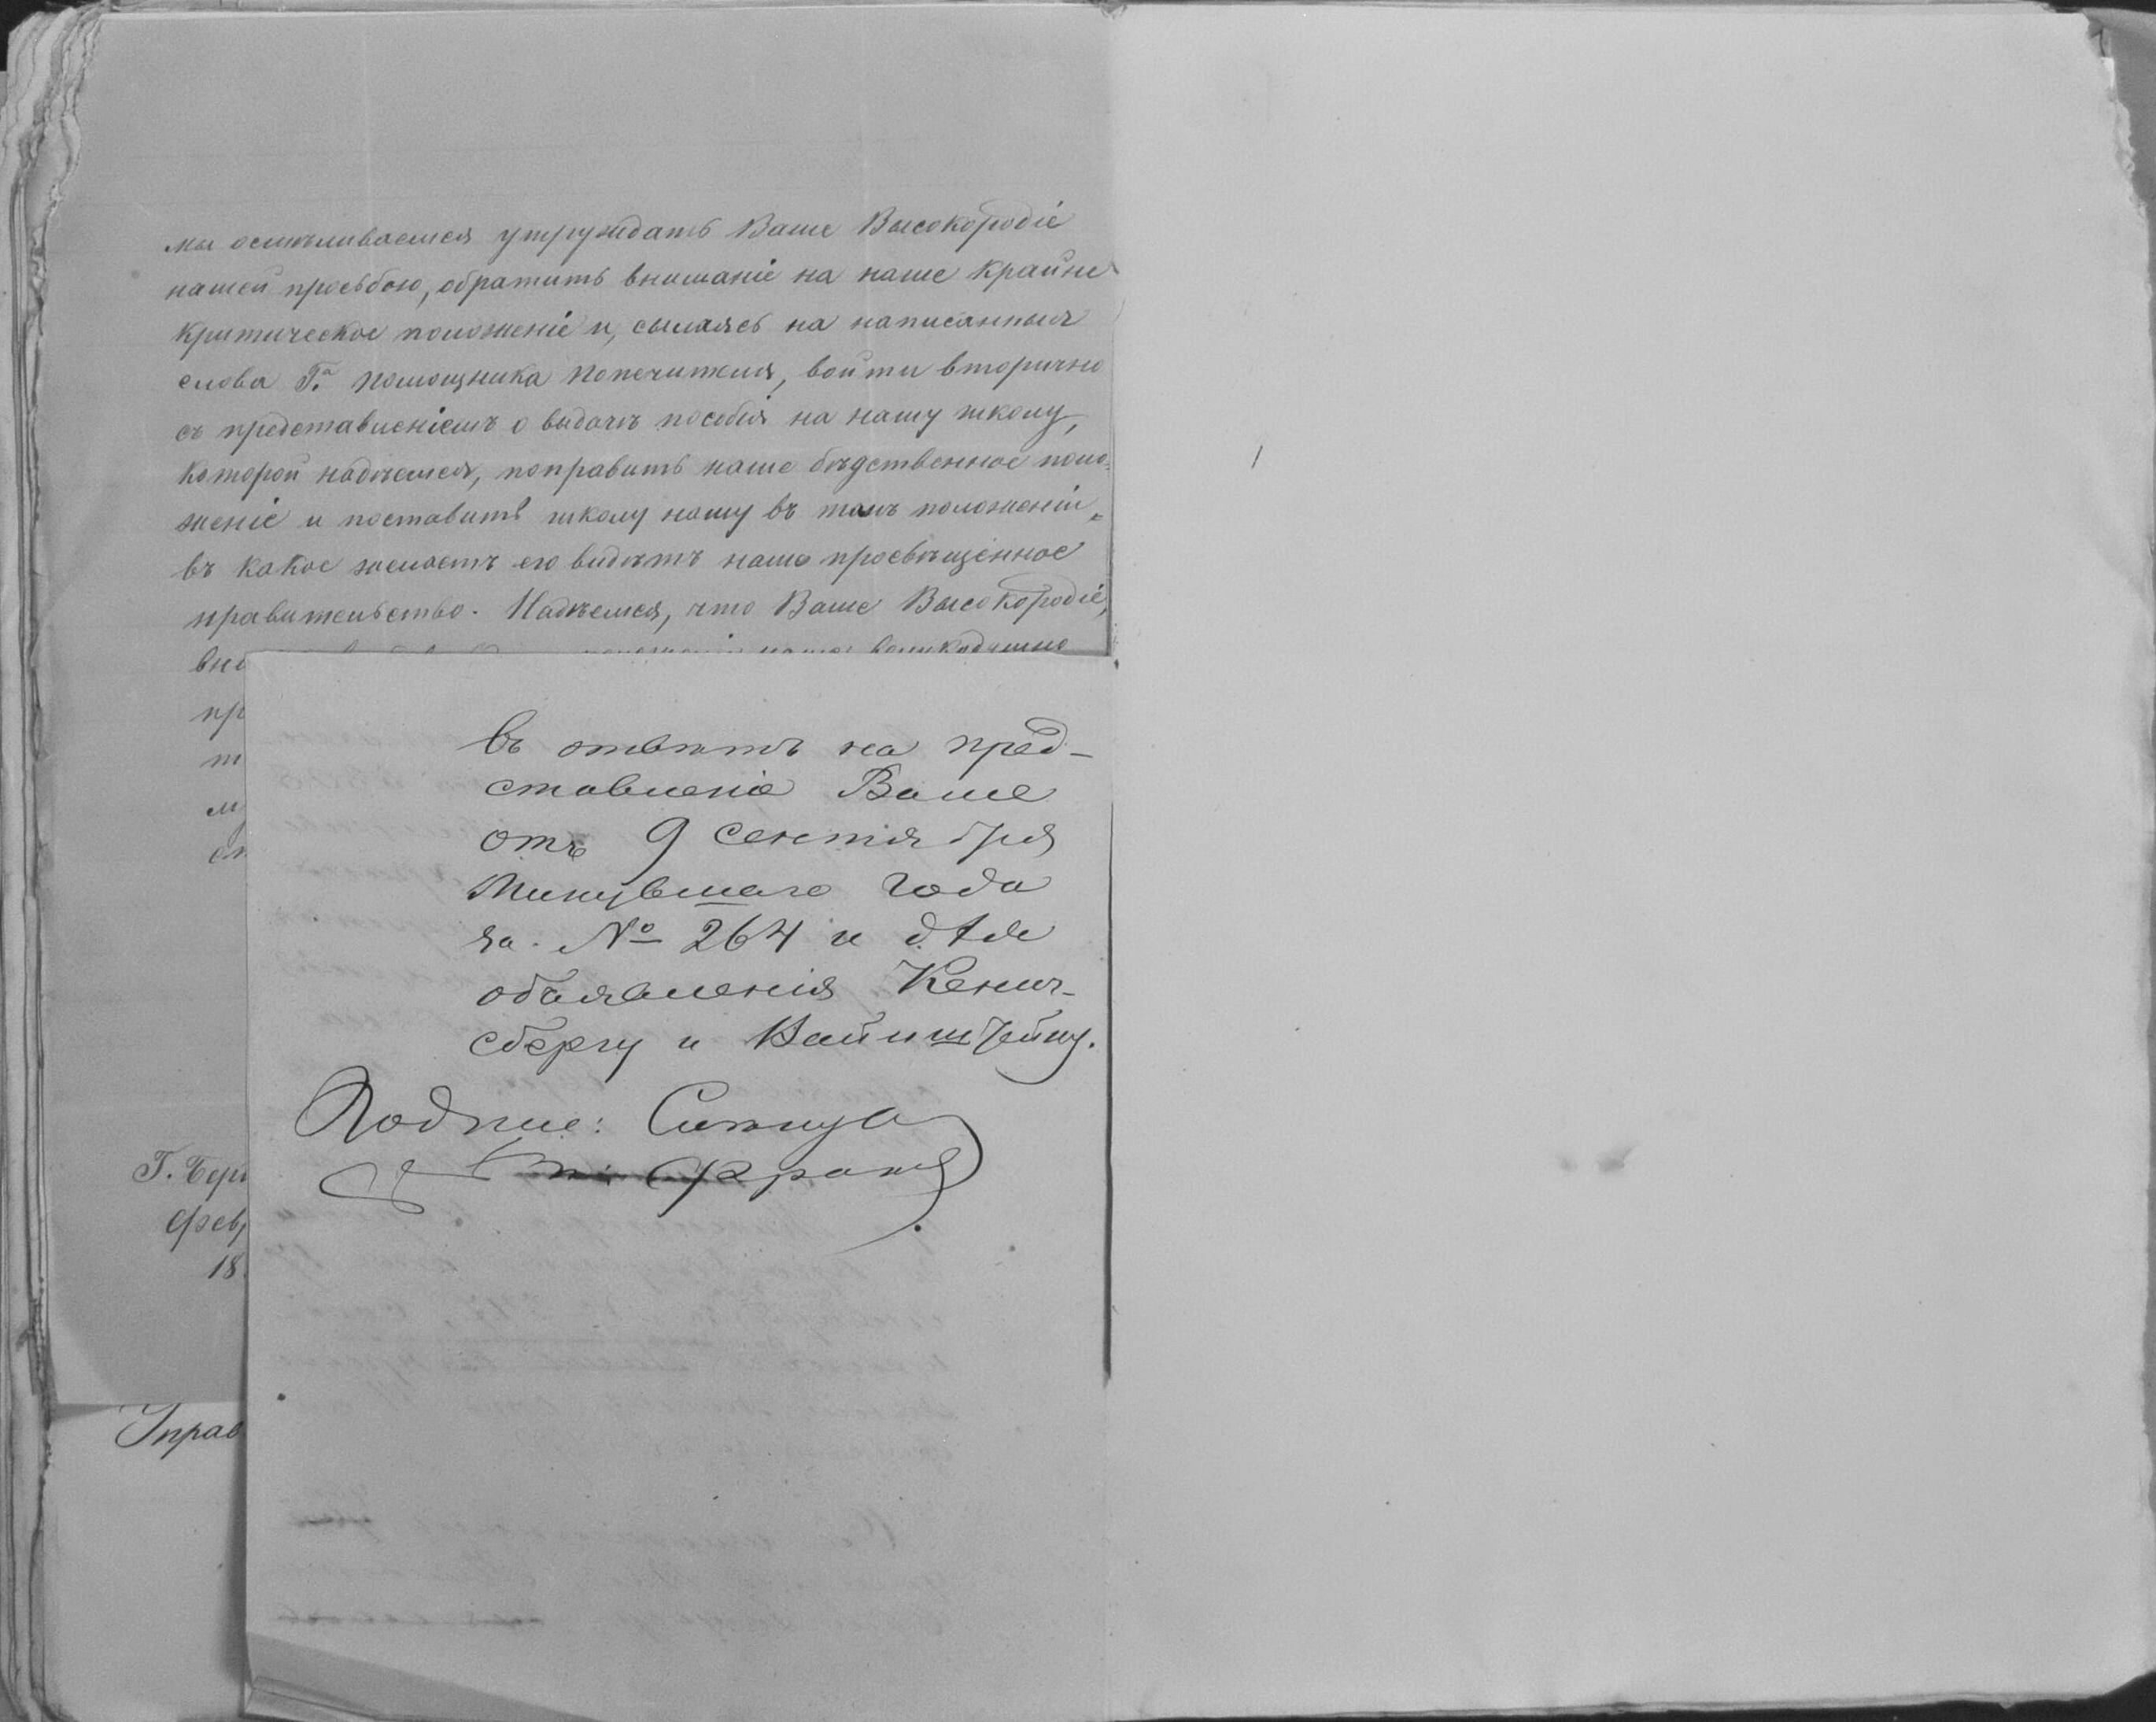 мы осмѣливаемся утруждать Ваше Высокородіе
нашей просьбою, обратить вниманіе на наше крайне
критическое положеніе и, сылаясь на написанныя
слова Г.а Помощника Попечителя, войти вторично
съ представленіемъ о выдачѣ пособія на нашу школу,
которой надѣемся, поправить наше бѣдственное поло-
женіе и поставить школу нашу въ томъ положеніи,
въ какое желаетъ его видѣть наше просвѣщенное
правительство. Надѣемся, что Ваше Высокородіе,
вни
пр
т
м
Г. Бер
Фев
18
Управ
въ отвѣтъ на пред-
ставленіе Ваше
отъ 9 сентября
минувшаго года
за № 264 и для
объявленія Кениг-
сбергу и Вайнштейну.
Подпис: